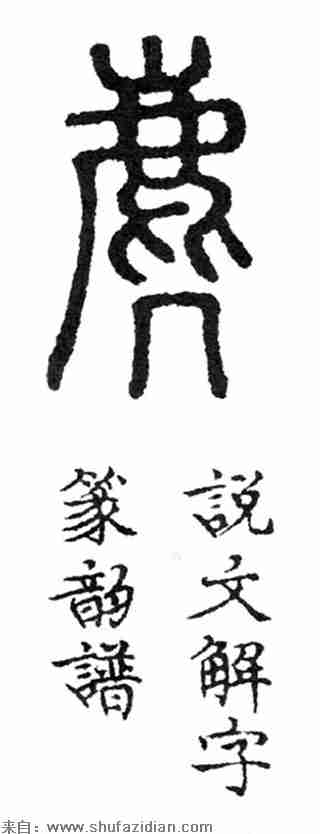 麂
説文解字
篆韵譜
来自：www.shufazidian.com